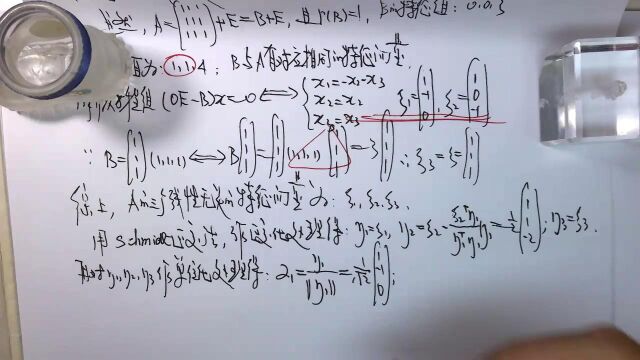 A = (1 1 1 1 1 1 1 1 1) + E = B + E, 且 r(B) = 1, B的特征值: 0.0.3
为: 1, 1, 4; B与A有对应相同的特征向量.
特征值 (0E-B)x=0 ⟺ { x₁=-x₂-x₃ x₂=x₂ x₃=x₃ ξ₁=(1 -1 0), ξ₂=(1 0 -1)
∵ B=(1 1 1)(1,1,1) ⟺ B(1 1 1)=(1 1 1)(1,1,1)(1 1 1)=3(1 1 1) ∴ ξ₃=ξ=(1 1 1)
综上, A的三个线性无关的特征向量为: ξ₁.ξ₂.ξ₃.
用Schmidt正交法, 可正交化处理得: η₁=ξ₁, η₂=ξ₂-(ξ₂ᵀη₁/η₁ᵀη₁)η₁=½(1 1 -2); η₃=ξ₃.
再对η₁,η₂,η₃ 单位化处理得: α₁=η₁/||η₁||=1/√2(1 -1 0);